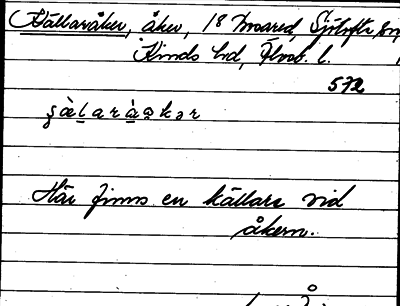 Källaråker, åker, 18 Moared, Sjötofta sn
Kinds hd, Älvsb. l.
572
Här finns en källare vid
åkern.